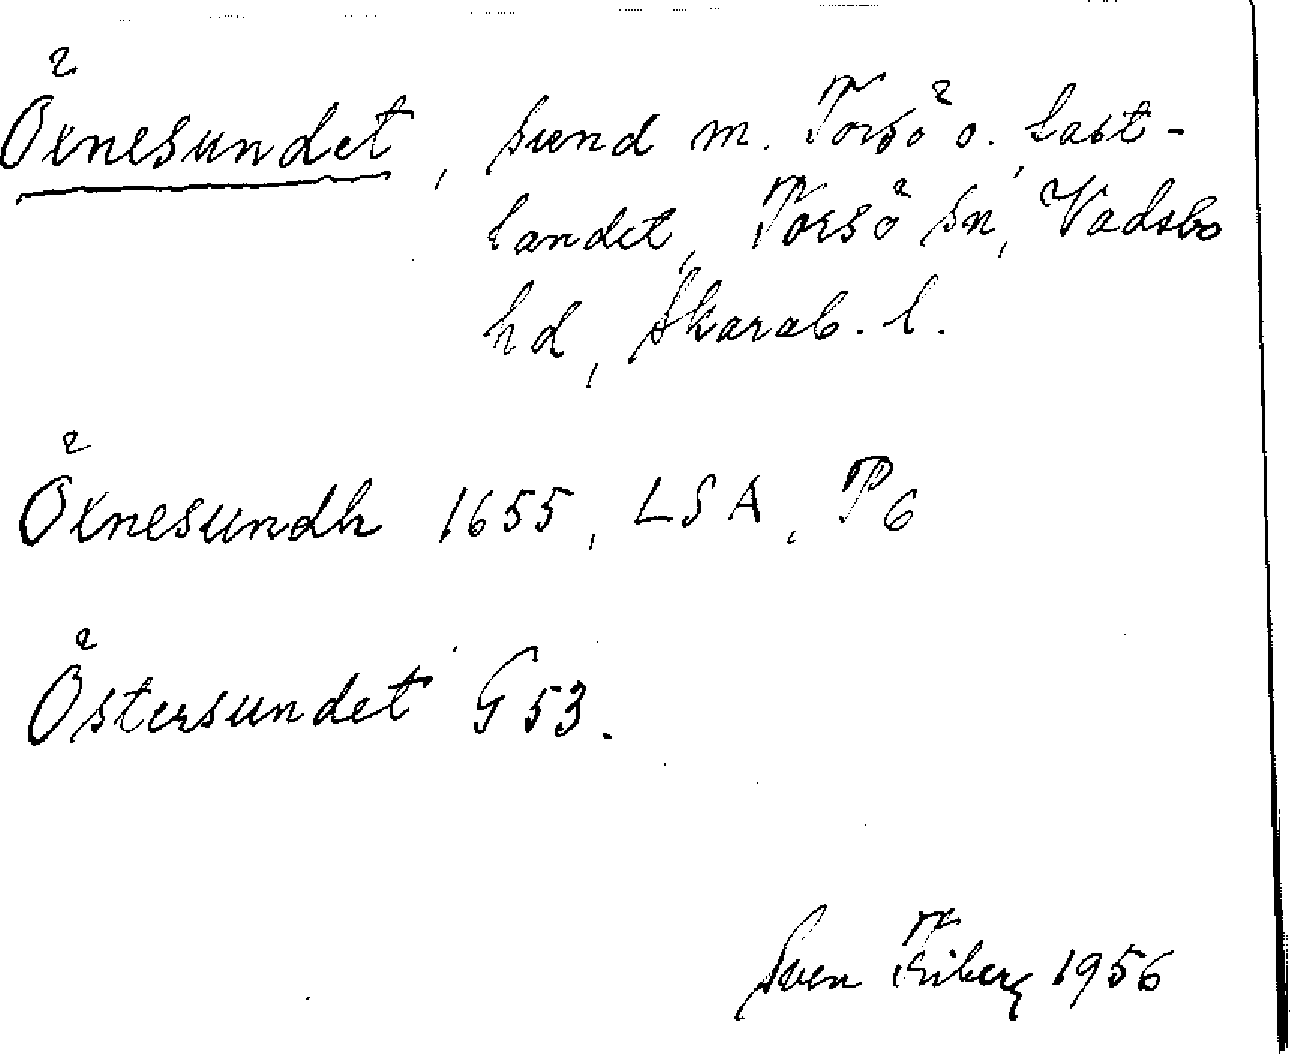 Öxnesundet, sund m. Torsö o. fast-
landet, Torsö sn, Vadsbo
hd, Skarab. l.
Öxnesundh 1655, LSA, P6
Östersundet G 53.
Sven Friberg 1956